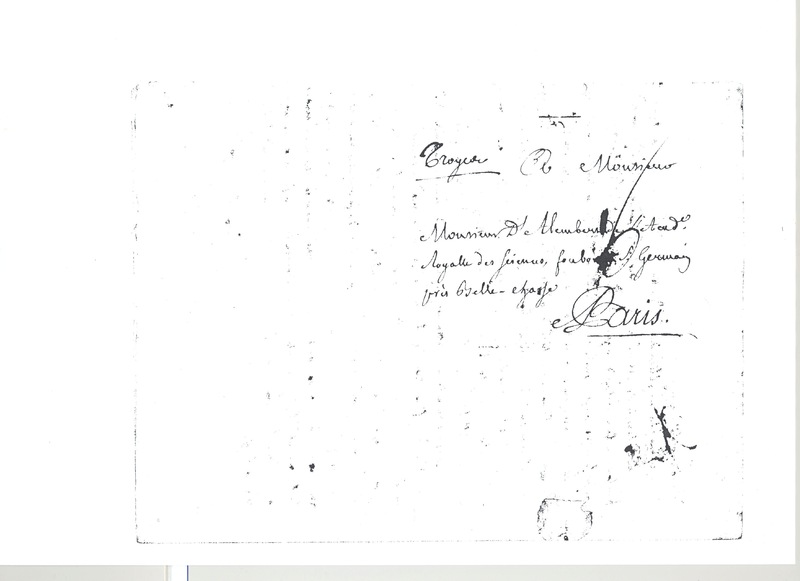 Troyes A Monsieur
Monsieur D'Alembert de l'Acad.
Royalle des sciences, faubourg St Germain
près Belle-chasse
A Paris.